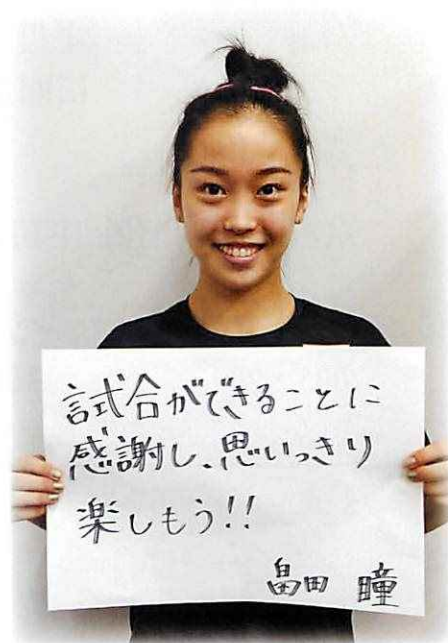 試合ができることに
感謝し、思いっきり
楽しもう!!
畠田 瞳